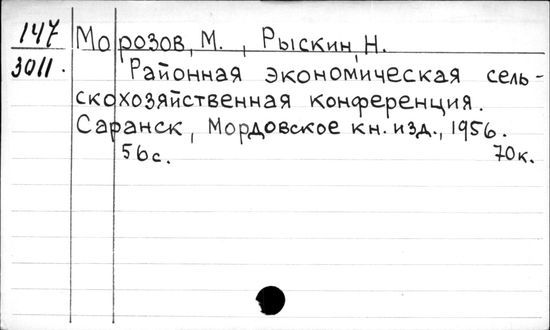 147 Морозов, М., Рыскин, Н.
3011. Районная экономическая сель-
скохозяйственная конференция.
Саранск, Мордовское кн. изд., 1956.
56с. 70к.